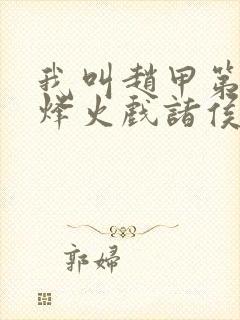 我叫趙甲第
烽火戲諸侯
郭婦